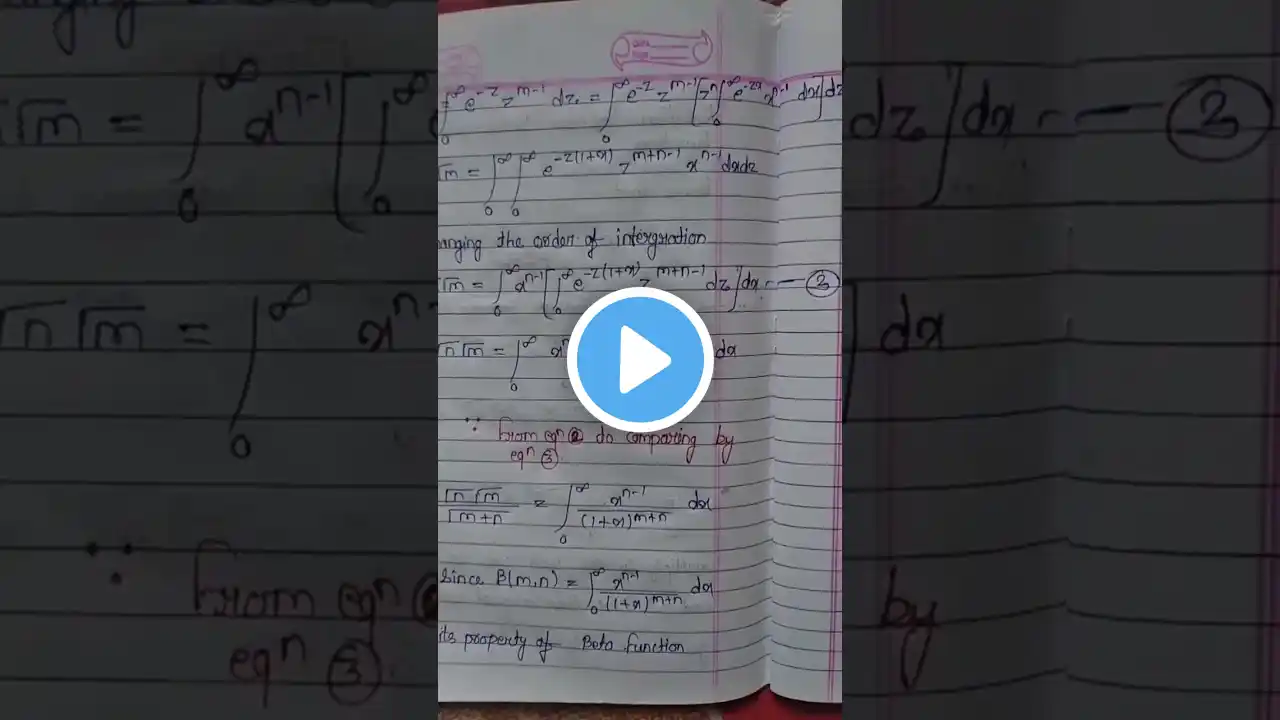 ∫₀^∞ e^{-z} z^{m-1} dz = ∫₀^∞ e^{-z} z^{m-1} [z^n ∫₀^∞ e^{-zx} x^{n-1} dx] dz
√m = ∫₀^∞ ∫₀^∞ e^{-z(1+x)} z^{m+n-1} x^{n-1} dx dz
anging the order of intergration
√m = ∫₀^∞ x^{n-1} [∫₀^∞ e^{-z(1+x)} z^{m+n-1} dz] dx -- ③
√n √m = ∫₀^∞ dx
∵ from eqⁿ ② do comparing by
eqⁿ ③
√n √m / √m+n = ∫₀^∞ x^{n-1} / (1+x)^{m+n} dx
Since β(m,n) = ∫₀^∞ x^{n-1} / (1+x)^{m+n} dx
its property of Beta function